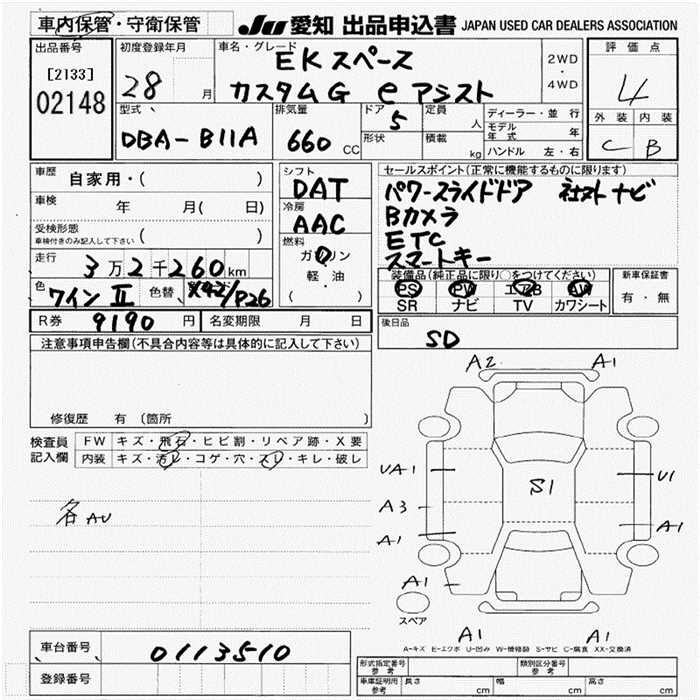 車内保管・守衛保管
JU 愛知 出品申込書 JAPAN USED CAR DEALERS ASSOCIATION
出品番号
[2133]
02148
初度登録年月
28 月
車名・グレード
EKスペース
カスタムG eアシスト
2WD
・
4WD
評価点
4
外装 内装
C B
型式
DBA-B11A
排気量
660 CC
ドア
5
形状
定員
人
積載
kg
ディーラー・並行
モデル年式 年
ハンドル 左・右
車歴 自家用・( )
車検 年 月( 日)
受検形態
車検付きのみ記入して下さい ( )
走行 3万2千260km
色 ワインII 色替 X42/P26
R券 9190 円 名変期限 月 日
シフト
DAT
冷房
AAC
燃料
ガソリン
軽・油
( )
セールスポイント(正常に機能するものに限ります)
パワースライドドア 社外ナビ
Bカメラ
ETC
スマートキー
装備品(純正品に限り○をつけてください)
PS PW エアB AW
SR ナビ TV カワシート
新車保証書
有・無
後日品
SD
注意事項申告欄(不具合内容等は具体的に記入して下さい)
修復歴 有 (箇所 )
検査員記入欄
FW キズ・飛石・ヒビ割・リペア跡・X要
内装 キズ・汚レ・コゲ・穴・スレ・キレ・破レ
各AU
A2 A1
UA1 S1 U1
A3
A1 A1
A1
スペア
A1 A1
A-キズ E-エクボ U-凹み W-補修跡 S-サビ C-腐食 XX-交換済
車台番号 0113510
登録番号
形式指定番号 参考 類別区分番号 参考
車庫証明用 参考 長さ cm 幅 cm 高さ cm